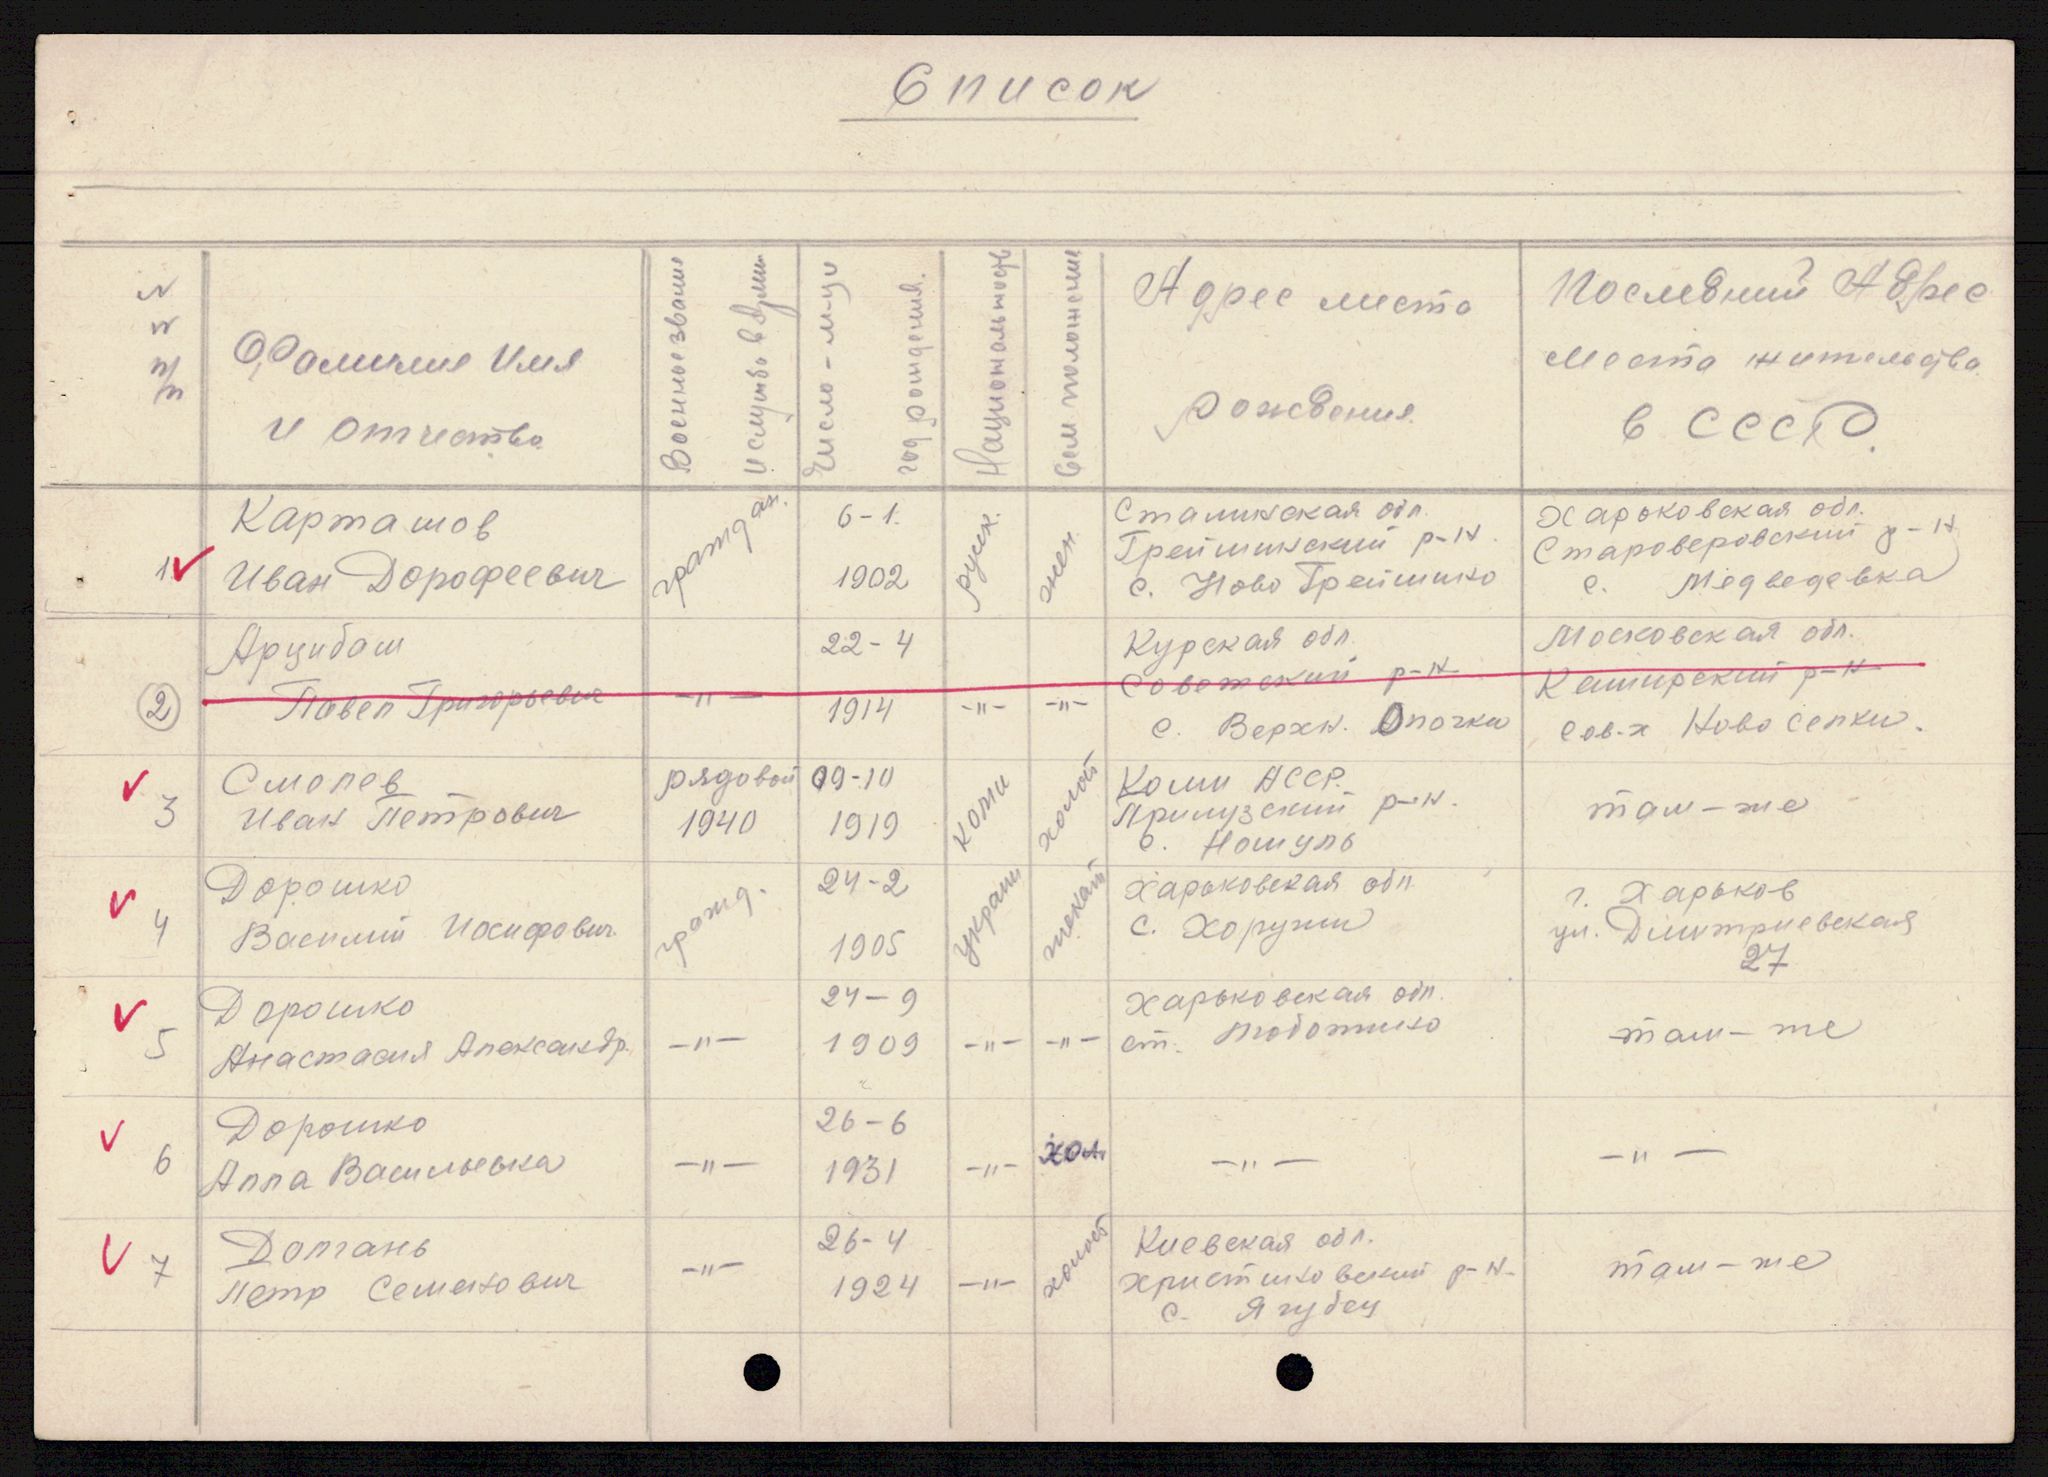 Список
№ № п/п
Фамилие Имя
и отчество
Военное звание
и служба в
Число - м-ц и
год рождения.
Национальность
Сем положение
Адрес места
рождения.
Последний Адрес
места жительства
в СССР.
1
Карташов
Иван Дорофеевич
граждан.
6-1.
1902
русск.
жен.
Сталинская обл.
Гришинский р-н.
с. Ново Гришино
Харьковская обл.
Староверовский р-н
с. Медведевка
2
Арцибаш
Павел Григорьевич
-"-
22-4
1914
-"-
-"-
Курская обл.
Советский р-н
с. Верхн. Опочки
Московская обл.
Каширский р-н
сов-х Новоселки.
3
Смолев
Иван Петрович
рядовой
1940
09-10
1919
коми
холост
Коми АССР.
Прилузский р-н.
с. Ношуль
там-же
4
Дорошко
Василий Иосифович
гражд.
24-2
1905
Украин
женат
Харьковская обл
с. Хоружи
г. Харьков
ул. Дмитриевская
27
5
Дорошко
Анастасия Александр.
-"-
24-9
1909
-"-
-"-
Харьковская обл.
ст. Люботино
там-же
6
Дорошко
Алла Васильевна
-"-
26-6
1931
-"-
хол.
-"-
-"-
7
Долгань
Петр Семенович
-"-
26-4
1924
-"-
холост
Киевская обл.
Христиновский р-н
с. Ягубец
там-же